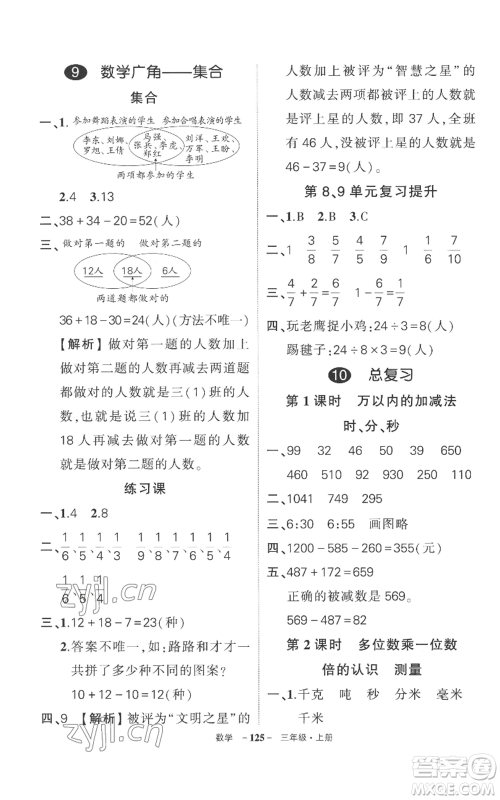 9 数学广角——集合
集合
一、1. 参加舞蹈表演的学生 参加合唱表演的学生
李东、刘娜、罗旭、王倩 马强、张兵、李虎、郑红 刘洋、王欢、万军、王盼、李明
两项都参加的学生
2.4 3.13
二、38+34-20=52(人)
三、做对第一题的 做对第二题的
12人 18人 6人
两道题都做对的
36+18-30=24(人)(方法不唯一)
【解析】做对第一题的人数加上
做对第二题的人数再减去两道题
都做对的人数就是三(1)班的人
数,也就是用三(1)班的人数加
18人再减去做对第一题的人数
就是做对第二题的人数。
练习课
一、1.4 2.8
二、1/6 1/4 1/3 1/6 1/4 1/3 1/6 1/4 1/3
1/6 1/4 1/3
三、1.12+18-7=23(种)
2.答案不唯一,如:路路和才才一
共拼了多少种不同的图案?
10+12-10=12(种)
四、9 【解析】被评为“文明之星”的
人数加上被评为“智慧之星”的
人数减去两项都被评上的人数
就是评上星的人数,即37人,全班
有46人,没有被评上星的有
46-37=9(人)。
第8、9单元复习提升
一、1.B 2.B 3.C
二、1 3/8 5/7 3/9 1 4/7 2/9
三、4/7+2/7=6/7 1-4/7=3/7
四、玩老鹰捉小鸡:24÷3=8(人)
踢毽子:24÷8×3=9(人)
10 总复习
第1课时 万以内的加减法
时、分、秒
一、95 45 90 39 650
460 510 920 110 380
二、1041 749 200
三、6:30 6:55 画图略
四、1200-585-460=155(元)
五、487+172=659
正确的被减数是569。
569-487=82
第2课时 多位数乘一位数
倍的认识 测量
一、1.千克 吨 秒 分米 毫米
千米
zyjl.cn
zyjl.cn
数学 -125- 三年级·上册
答案圈